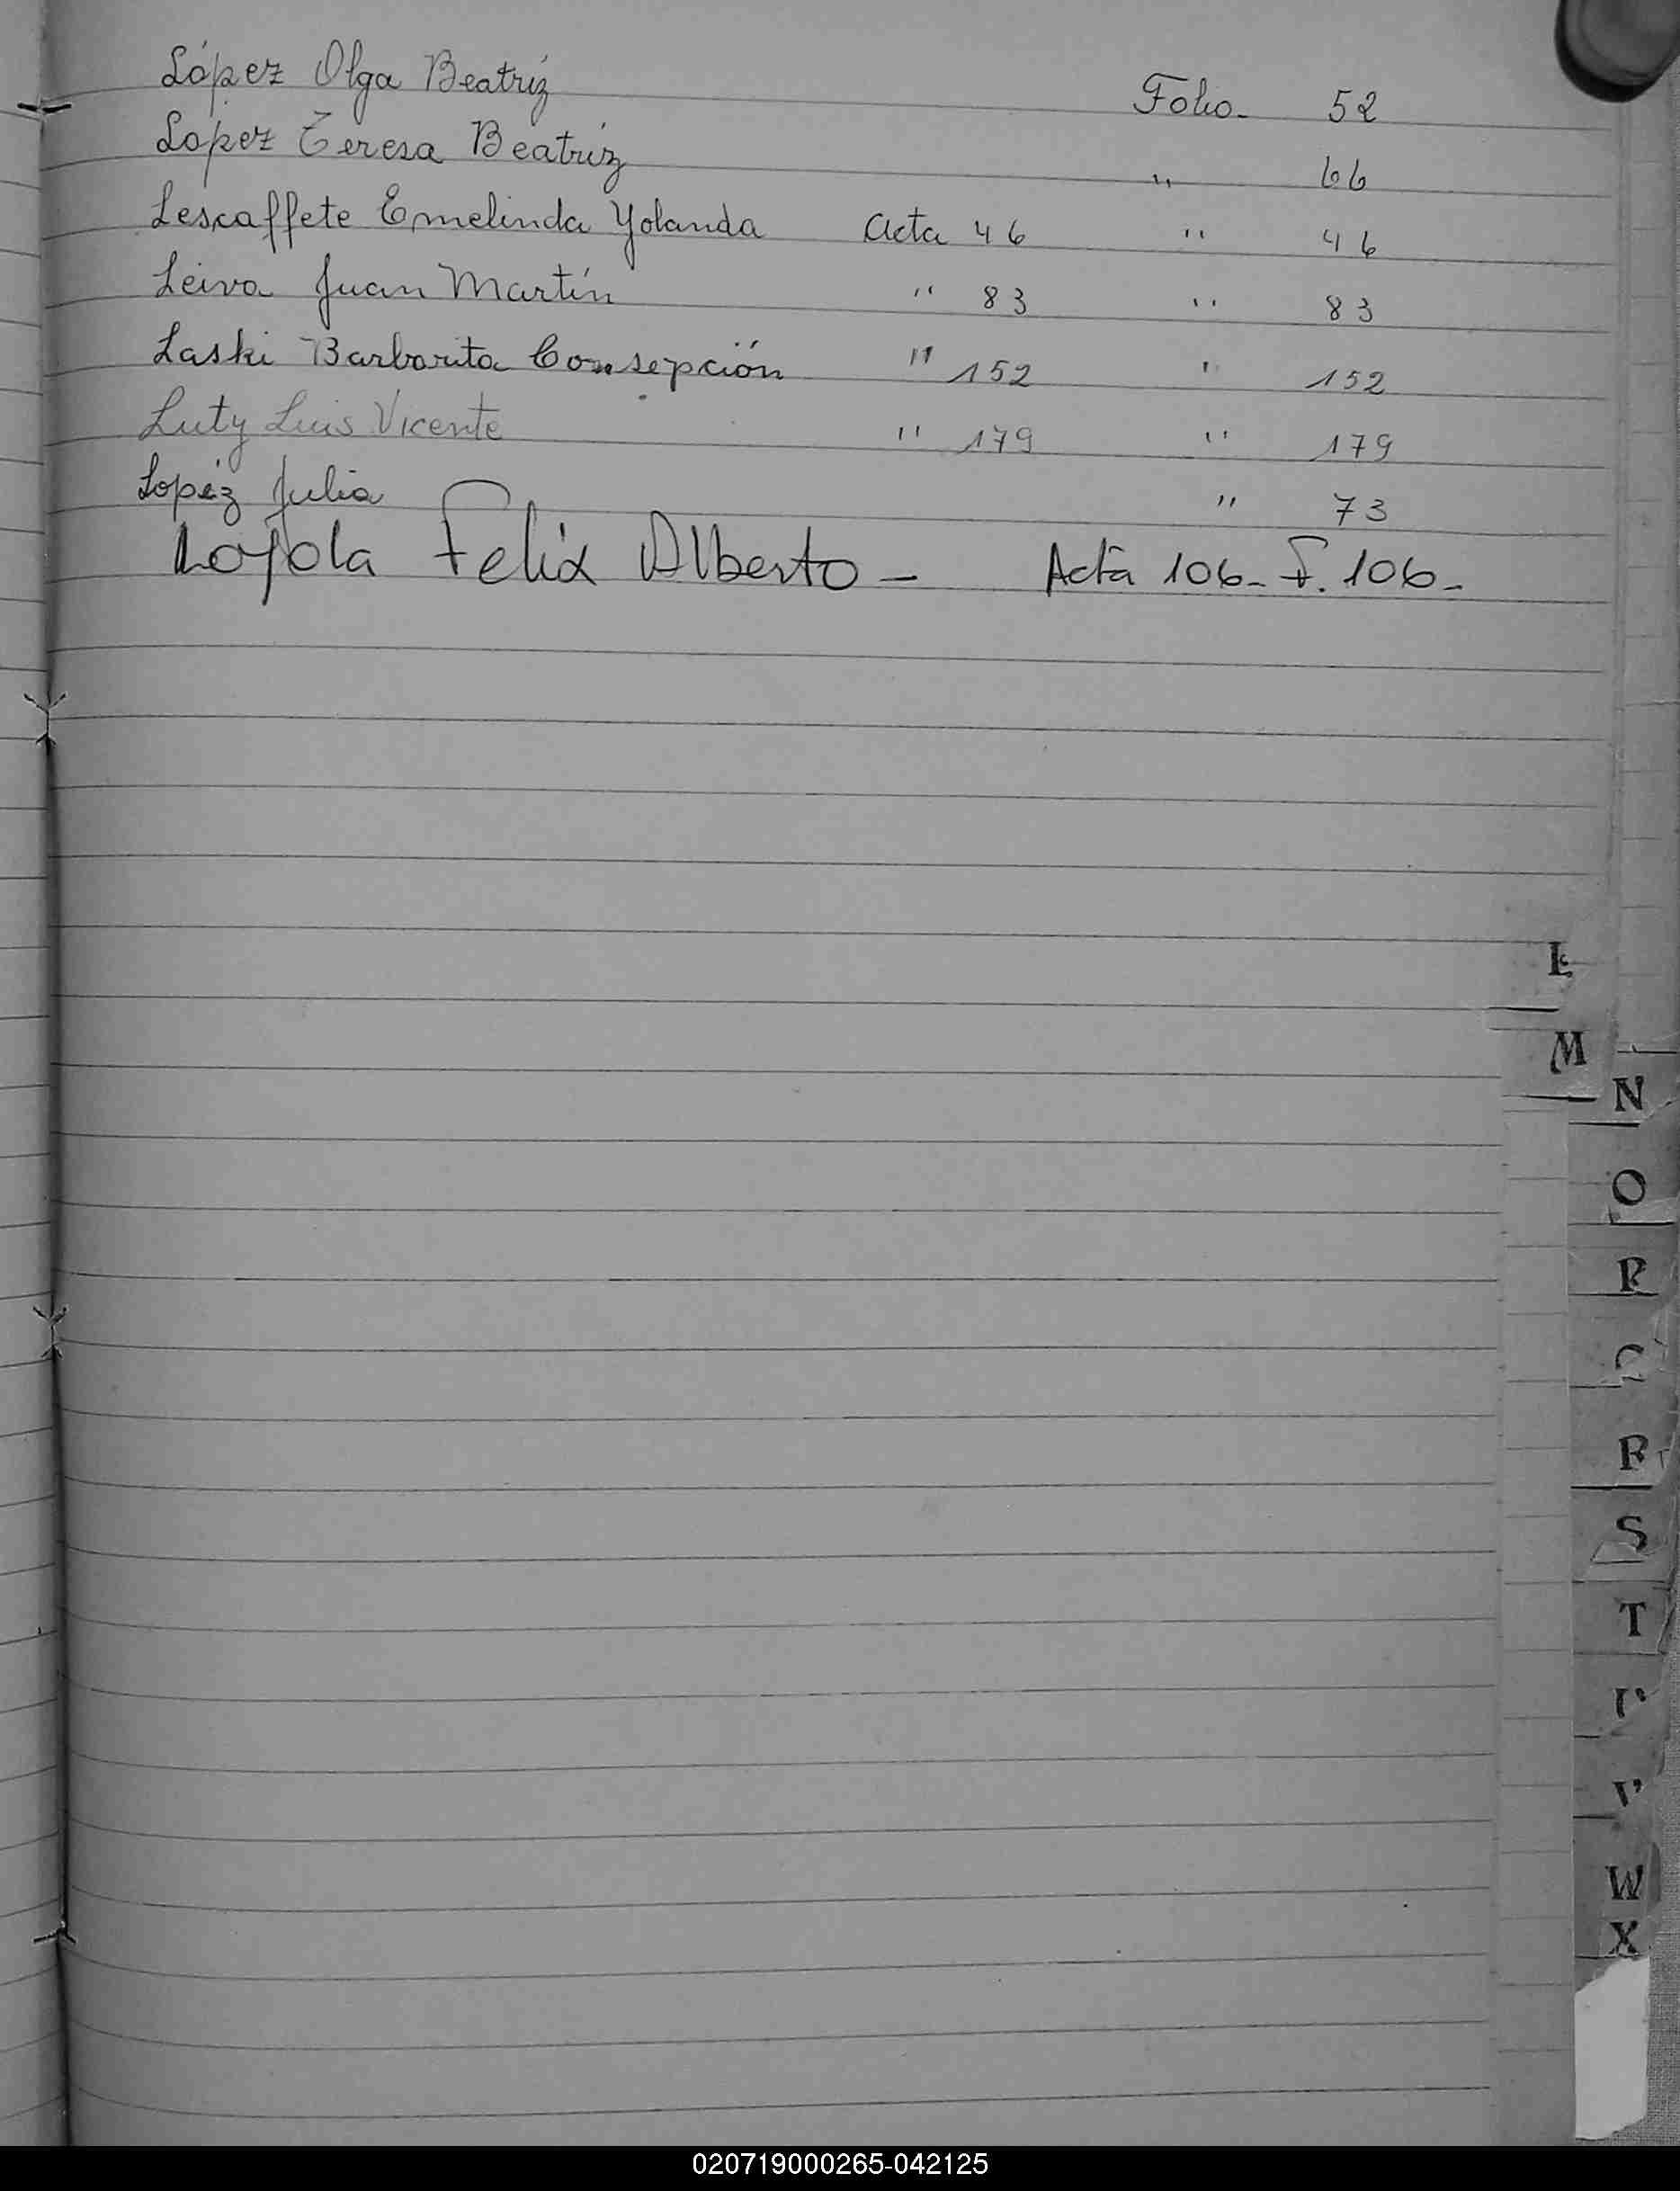 López Olga Beatríz Folio - 52
López Teresa Beatríz " 66
Lescaffete Emelinda Yolanda Acta 46 " 46
Leiva Juan Martín " 83 " 83
Laski Barbarita Consepción " 152 " 152
Luty Luis Vicente " 179 " 179
Lopéz Julia " 73
Loyola Felix Alberto - Acta 106- F. 106-
L
M
N
O
P
Q
R
S
T
U
V
W
X
020719000265-042125